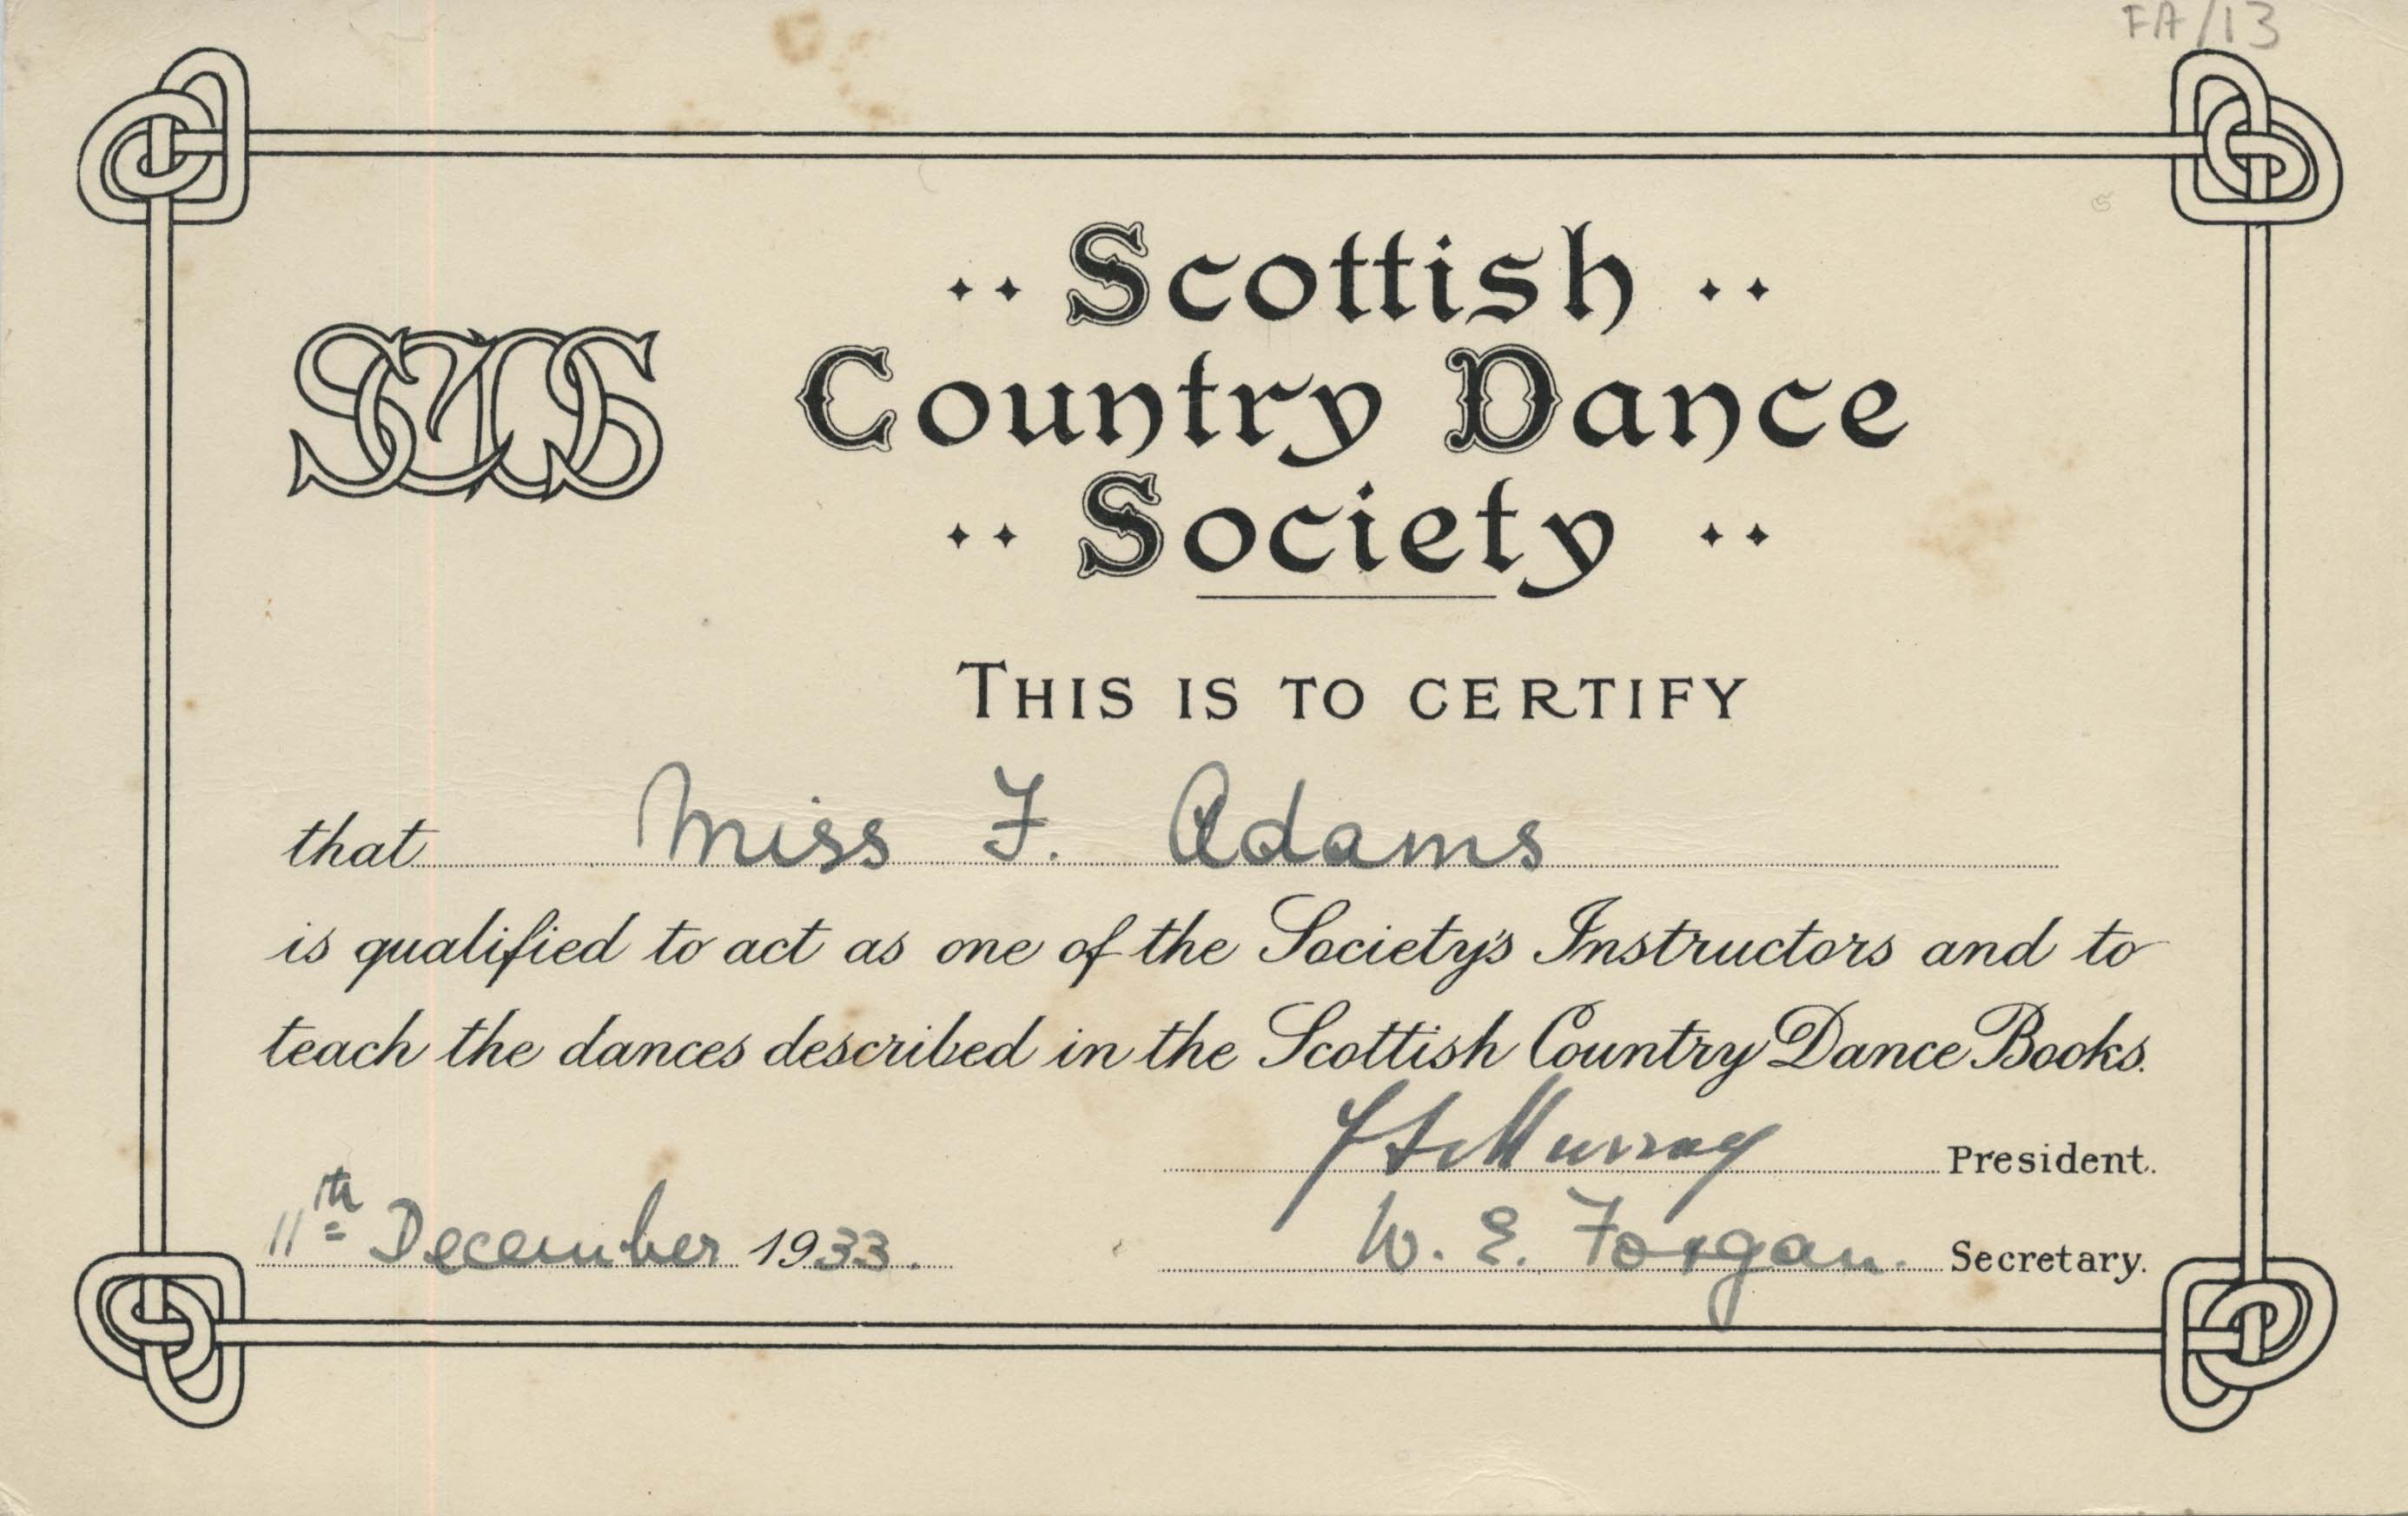 FA/13
SCDS
Scottish
Country Dance
Society
THIS IS TO CERTIFY
that Miss F. Adams
is qualified to act as one of the Society's Instructors and to
teach the dances described in the Scottish Country Dance Books.
Murray President.
11th December 1933.
W. E. Forgan. Secretary.